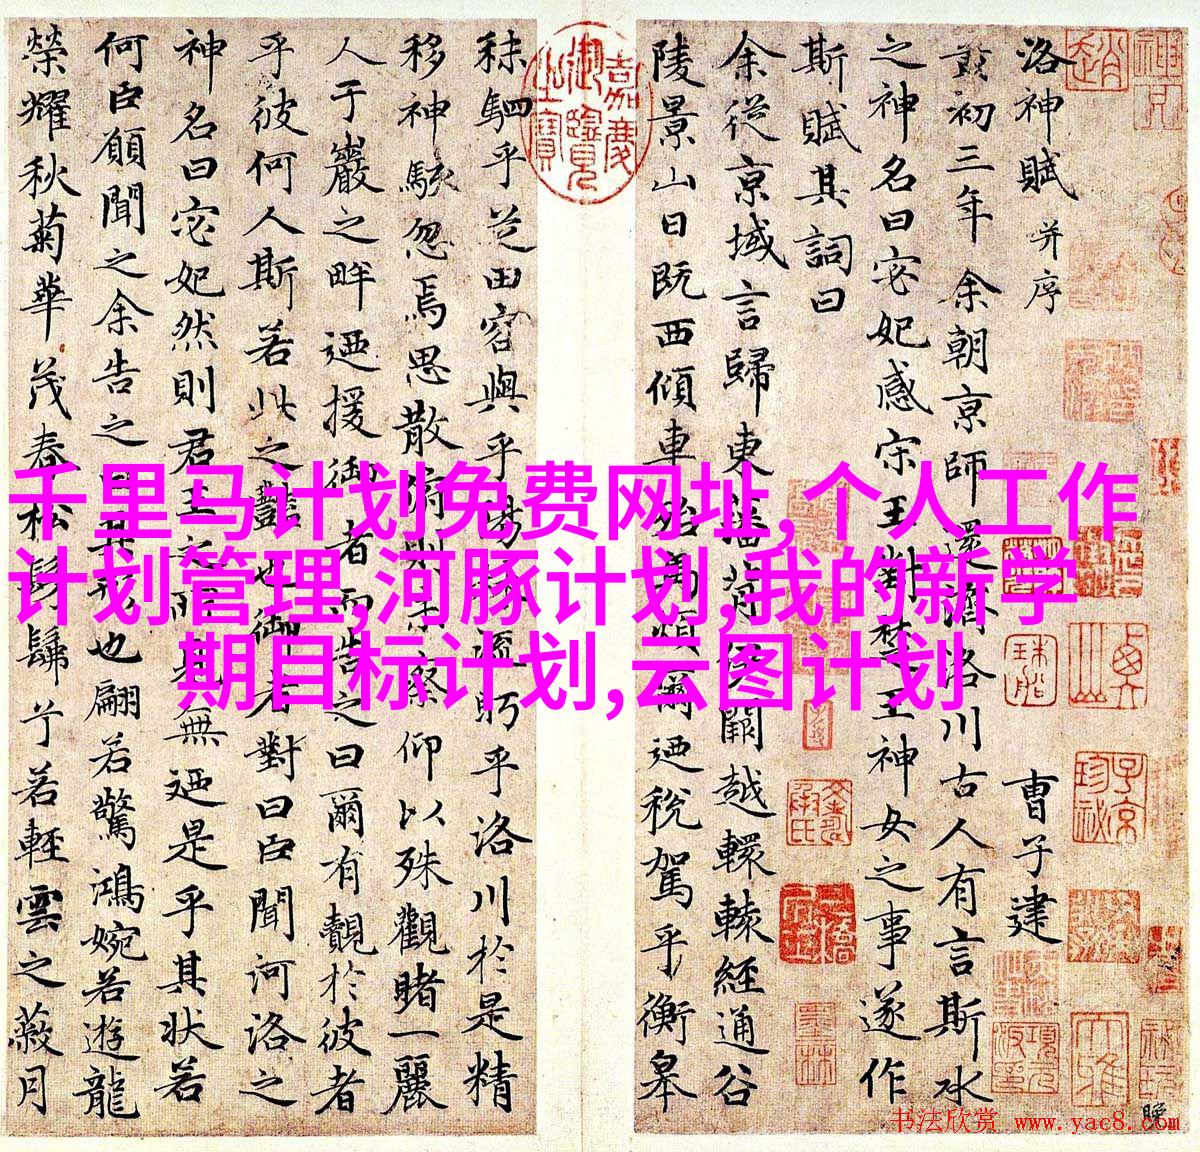 洛神賦 并序
曹子建
黃初三年余朝京師還濟洛川古人有言斯水
之神名曰宓妃感宋玉對楚王神女之事遂作
斯賦其詞曰
余從京域言歸東藩背伊闕越轘轅經通谷
陵景山日既西傾車殆馬煩爾迺稅駕乎衡皋
秣駟乎芝田容與乎楊林流眄乎洛川於是精
移神駭忽焉思散俯則未察仰以殊觀睹一麗
人于巖之畔迺援御者而告之曰爾有覿於彼者
乎彼何人斯若此之豔也御者對曰臣聞河洛之
神名曰宓妃然則君王之所見無迺是乎其狀若
何臣願聞之余告之曰其形也翩若驚鴻婉若遊龍
榮耀秋菊華茂春松髣髴兮若輕雲之蔽月
嘉慶御覽之寶
千里马计划免费网址,个人工作
计划管理,河豚计划,我的新学
期目标计划,云图计划
书法欣赏 www.yac8.com